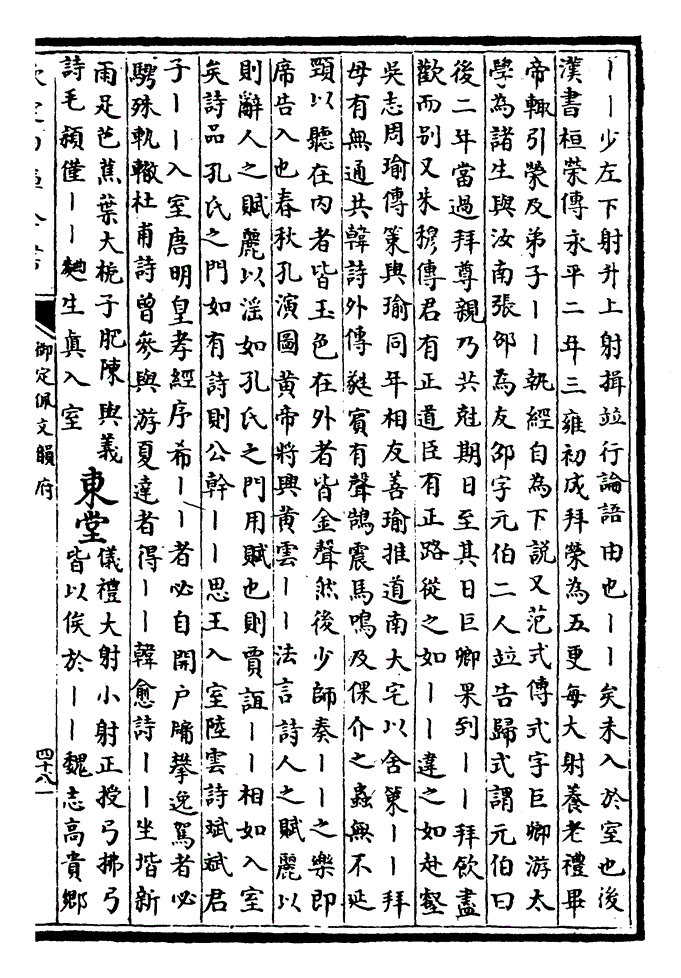 ｜｜少左下射升上射揖竝行論語由也｜｜矣未入於室也後
漢書桓榮傳永平二年三雍初成拜榮為五更每大射養老禮畢
帝輙引榮及弟子｜｜執經自為下説又范式傳式字巨卿游太
學為諸生與汝南張邵為友邵字元伯二人竝告歸式謂元伯曰
後二年當過拜尊親乃共尅期日至其日巨卿果到｜｜拜飲盡
歡而别又朱穆傳君有正道臣有正路從之如｜｜違之如赴壑
吳志周瑜傳策與瑜同年相友善瑜推道南大宅以舍策｜｜拜
母有無通共韓詩外傳蕤賓有聲鵠震馬鳴及倮介之蟲無不延
頸以聽在内者皆玉色在外者皆金聲然後少師奏｜｜之樂即
席告入也春秋孔演圖黄帝將興黄雲｜｜法言詩人之賦麗以
則辭人之賦麗以淫如孔氏之門用賦也則賈誼｜｜相如入室
矣詩品孔氏之門如有詩則公幹｜｜思王入室陸雲詩斌斌君
子｜｜入室唐明皇孝經序希｜｜者必自開户牖攀逸駕者必
騁殊軌轍杜甫詩曾參與游夏達者得｜｜韓愈詩｜｜坐堦新
雨足芭蕉葉大梔子肥陳與義
詩毛頴僅｜｜麯生眞入室
東堂
儀禮大射小射正授弓拂弓
皆以俟於｜｜魏志高貴鄉
御定佩文韻府